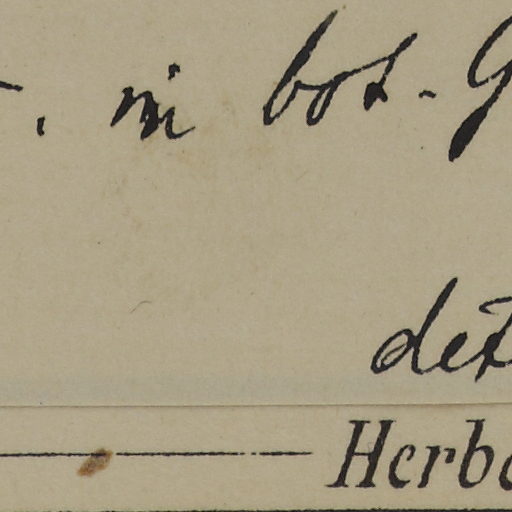 . in bot. G
det
Herb